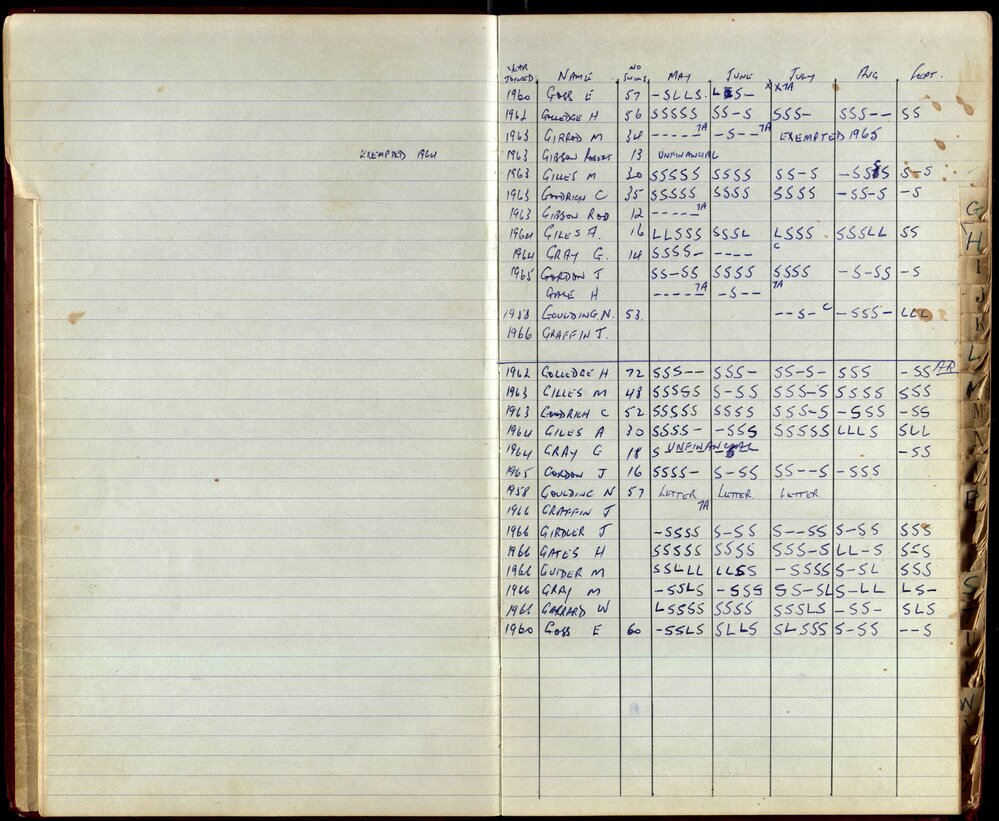 EXEMPTED 1964
YEAR JOINED NAME NO SWIMS MAY JUNE JULY AUG SEPT.
1960 GOSS E 57 -SLLS. LES- XX7A
1962 GOLLEDGE H 56 SSSSS SS-S SSS- SSS-- SS
1963 GIRROD M 34 -----7A -S--7A EXEMPTED 1965
1963 GIBSON ROBERT 13 UNFINANCIAL
1963 GILLES M 30 SSSSS SSSS SS-S -SSSS S-S
1963 GOODRICH C 35 SSSSS SSSS SSSS -SS-S -S
1963 GIBSON ROD 12 -----7A
1964 GILES A. 16 LLSSS SSSL LSSS SSSLL SS
1964 GRAY G. 14 SSSS- ---- C
1965 GORDON J SS-SS SSSS SSSS -S-SS -S
GALE H -----7A -S-- 7A
1958 GOULDING N. 53. --S-C -SSS- LLL
1966 GRAFFIN J.
1962 GOLLEDGE H 72 SSS-- SSS- SS-S- SSS -SS AR
1963 GILLES M 48 SSSSS S-SS SSS-S SSSS SSS
1963 GOODRICH C 52 SSSSS SSSS SSS-S -SSS -SS
1964 GILES A 30 SSSS- -SSS SSSSS LLLS SLL
1964 GRAY G 18 S UNFINANCIAL -SS
1965 GORDON J 16 SSSS- S-SS SS--S -SSS
1958 GOULDING N 57 LETTER LETTER LETTER
1966 GRAFFIN J 7A
1966 GIRDLER J -SSSS S-SS S--SS S-SS SSS
1966 GATES H SSSSS SSSS SSS-S LL-S S-S
1966 GUIDER M SSLLL LLSS -SSSS S-SL SSS
1966 GRAY M -SSLS -SSS SS-SL S-LL LS-
1966 GARRARD W LSSSS SSSS SSSLS -SS- SLS
1960 GOSS E 60 -SSLS SLLS SLSSS S-SS --S
G
H
I
J
K
L
M
N
P
S
T
W